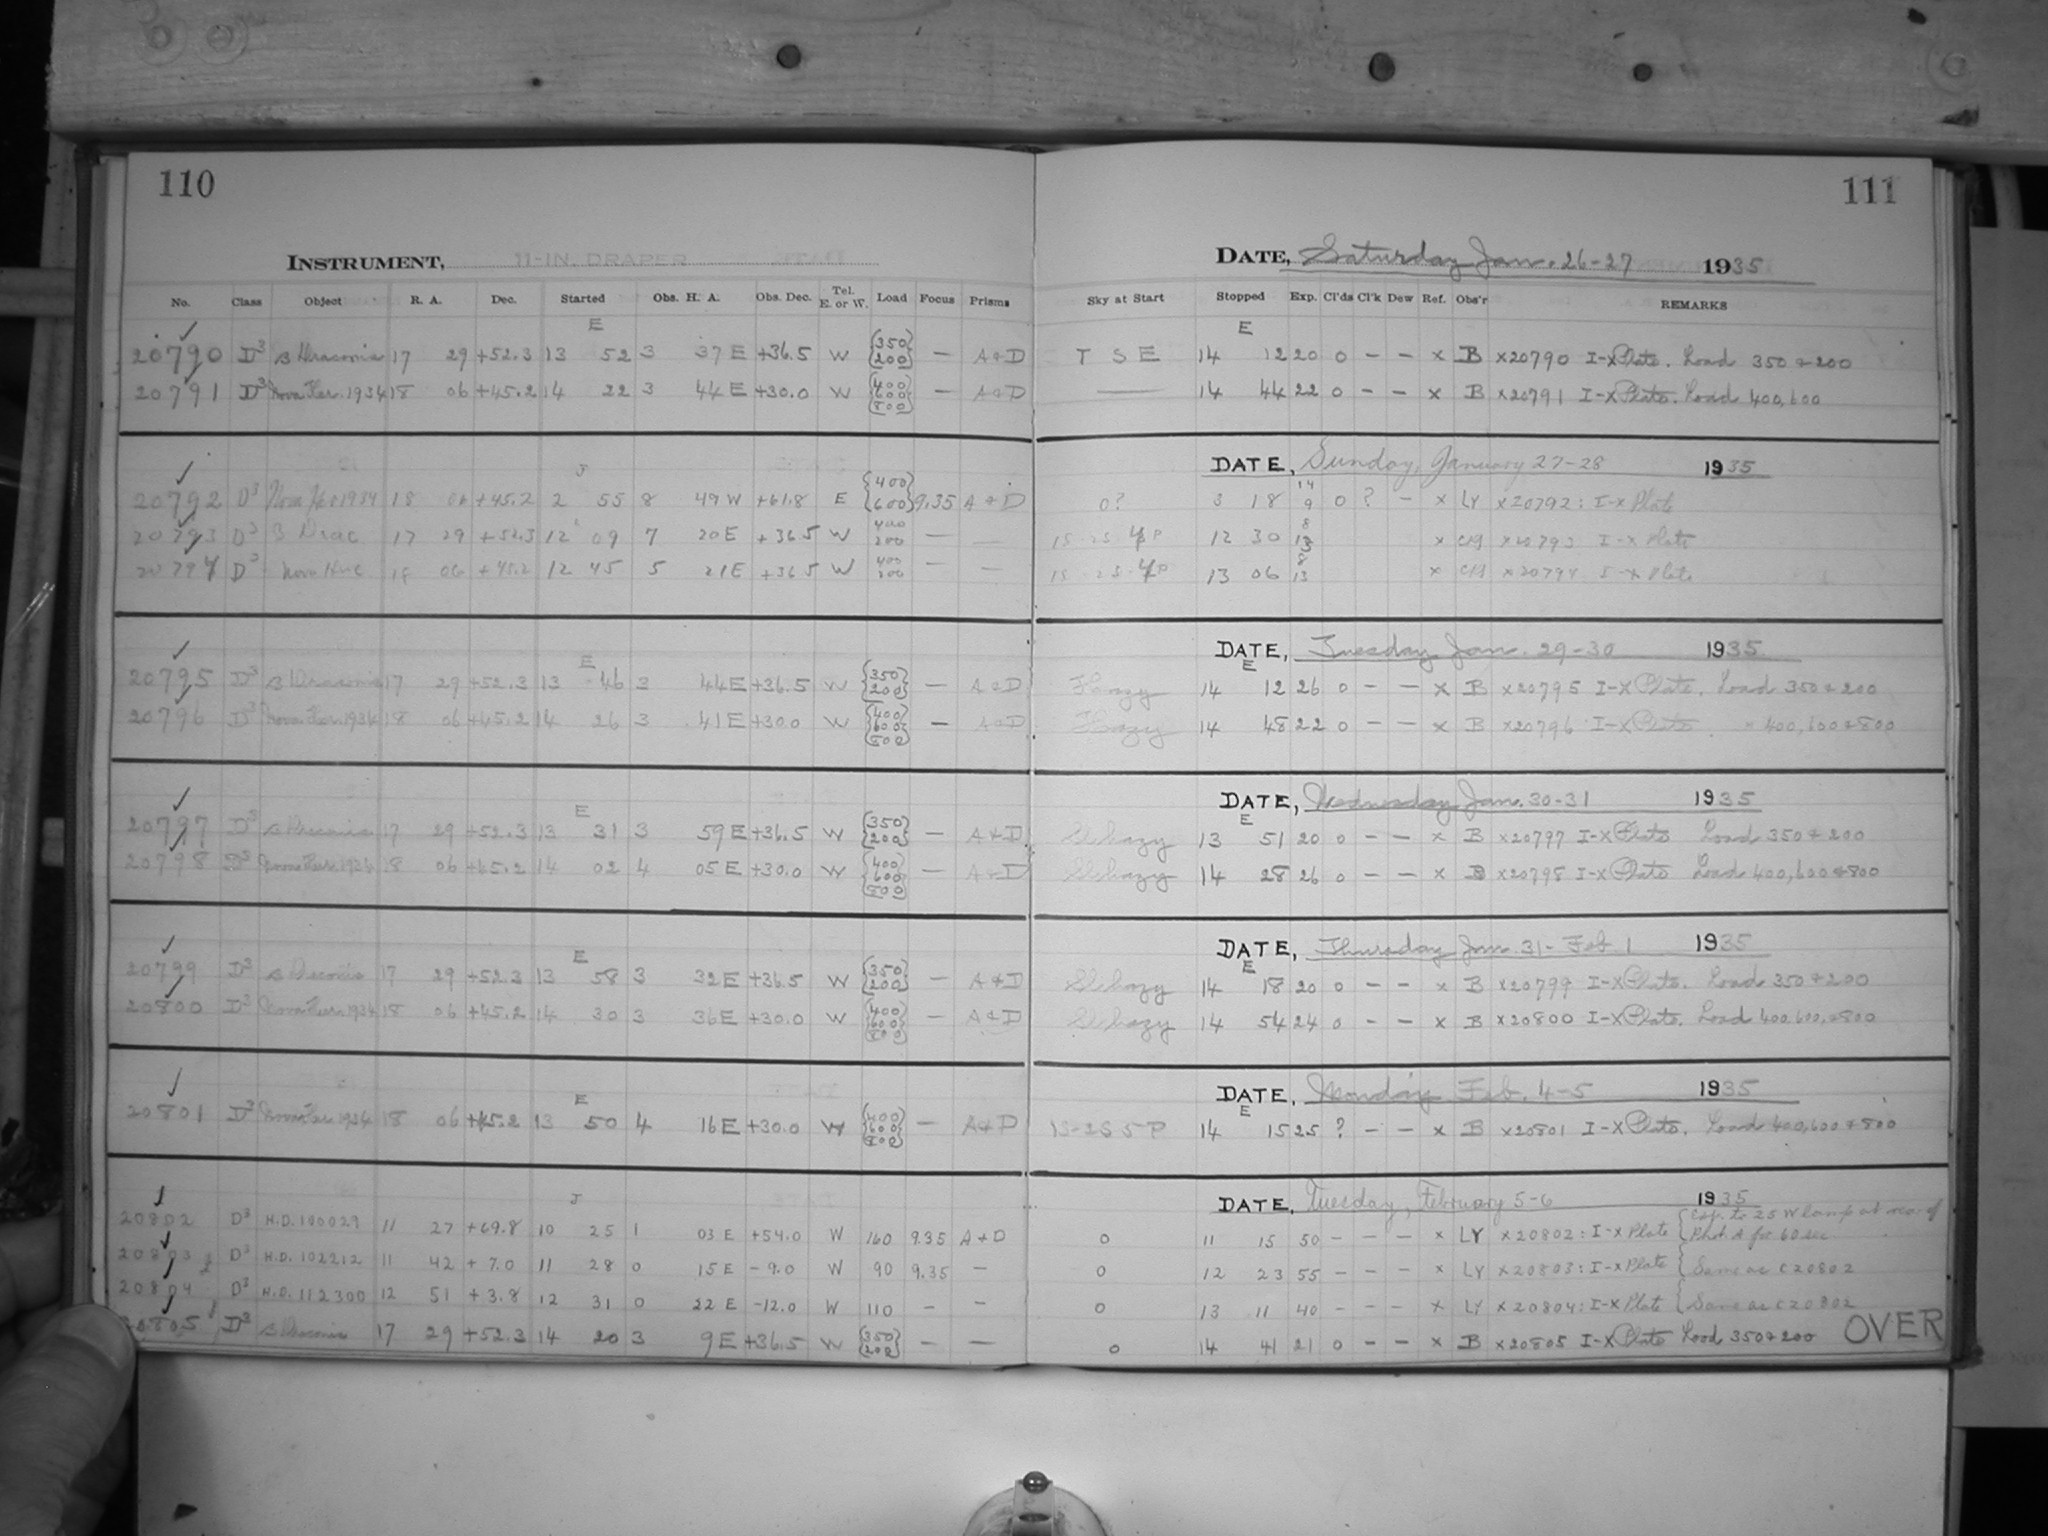 110
INSTRUMENT, 11-IN. DRAPER
No. Class Object R. A. Dec. Started Obs. H. A. Obs. Dec. Tel. E. or W. Load Focus Prisms
E
20790 D3 B Draconis 17 29 +52.3 13 52 3 37 E +36.5 W {350 200} — A & D
20791 D3 Nova Her. 1934 18 06 +45.2 14 22 3 44 E +30.0 W {400 600 800} — A & D
J
20792 D3 1934 18 06 +45.2 2 55 8 49 W +61.8 E {400 600} 9.35 A & D
20793 D3 B Drac 17 29 +52.3 12 09 7 20 E +36.5 W 400 200 — —
20794 D3 Nova Her 18 06 +45.2 12 45 5 21 E +36.5 W 400 200 — —
E
20795 D3 B Draconis 17 29 +52.3 13 46 3 44 E +36.5 W {350 200} — A & D
20796 D3 Nova Her. 1934 18 06 +45.2 14 26 3 41 E +30.0 W {400 600 800} — A & D
E
20797 D3 B Draconis 17 29 +52.3 13 31 3 59 E +36.5 W {350 200} — A & D
20798 D3 Nova Her. 1934 18 06 +45.2 14 02 4 05 E +30.0 W {400 600 800} — A & D
E
20799 D3 B Draconis 17 29 +52.3 13 58 3 32 E +36.5 W {350 200} — A & D
20800 D3 Nova Her. 1934 18 06 +45.2 14 30 3 36 E +30.0 W {400 600 800} — A & D
E
20801 D3 Nova Her. 1934 18 06 +45.2 13 50 4 16 E +30.0 W {400 600 800} — A & D
J
20802 D3 H.D. 100029 11 27 +69.8 10 25 1 03 E +54.0 W 160 9.35 A & D
20803 D3 H.D. 102212 11 42 +7.0 11 28 0 15 E -9.0 W 90 9.35 —
20804 D3 H.D. 112300 12 51 +3.8 12 31 0 22 E -12.0 W 110 — —
20805 D3 B Draconis 17 29 +52.3 14 20 3 9 E +36.5 W {350 200} — —
111
DATE, Saturday Jan. 26-27 1935
Sky at Start Stopped Exp. Cl'ds Cl'k Dew Ref. Obs'r REMARKS
E
T S E 14 12 20 0 — — x B x20790 I-X Plate. Load 350 & 200
— 14 44 22 0 — — x B x20791 I-X Plate. Load 400, 600
DATE, Sunday, January 27-28 1935
0? 3 18 14 9 0 ? — x LY x20792: I-X Plate
15-25 4P 12 30 8 13 x x20793 I-X Plate
15-25-4P 13 06 8 13 x x20794 I-X Plate
DATE, Tuesday Jan. 29-30 1935
E
Hazy 14 12 26 0 — — x B x20795 I-X Plate. Load 350 & 200
Hazy 14 48 22 0 — — x B x20796 I-X Plate. " 400, 600 & 800
DATE, Wednesday Jan. 30-31 1935
E
Sl. hazy 13 51 20 0 — — x B x20797 I-X Plate Load 350 & 200
Sl. hazy 14 28 26 0 — — x B x20798 I-X Plate Load 400, 600 & 800
DATE, Thursday Jan. 31 - Feb. 1 1935
E
Sl. hazy 14 18 20 0 — — x B x20799 I-X Plate. Load 350 & 200
Sl. hazy 14 54 24 0 — — x B x20800 I-X Plate. Load 400, 600, & 800
DATE, Monday Feb. 4-5 1935
E
15-25 5P 14 15 25 ? — — x B x20801 I-X Plate. Load 400, 600 & 800
DATE, Tuesday, February 5-6 1935
0 11 15 50 — — — x LY x20802: I-X Plate {Exp. to 25 W lamp at rear of Phot A for 60 sec
0 12 23 55 — — — x LY x20803: I-X Plate {Same as C20802
0 13 11 40 — — — x LY x20804: I-X Plate {Same as C20802
0 14 41 21 0 — — x B x20805 I-X Plate Load 350 & 200 OVER